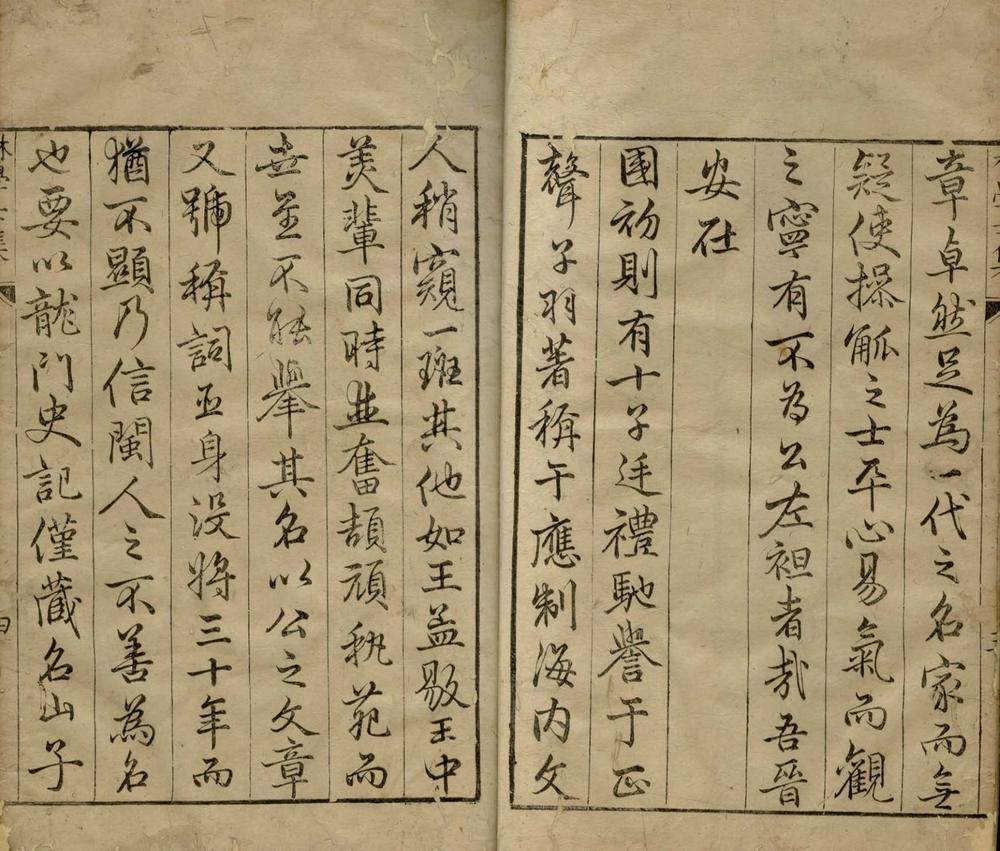 章卓然足為一代之名家而無
疑使操觚之士平心易氣而觀
之寧有不為公左袒者哉吾晉
安在
國初則有十子廷禮馳譽于正
聲子羽著稱于應制海內文
人稍窺一班其他如王孟敭王中
美輩同時並奮頡頏執苑而
世並不能舉其名以公之文章
又號稱詞匠身沒將三十年而
猶不顯乃信閩人之不善為名
也要以龍門史記僅藏名山子